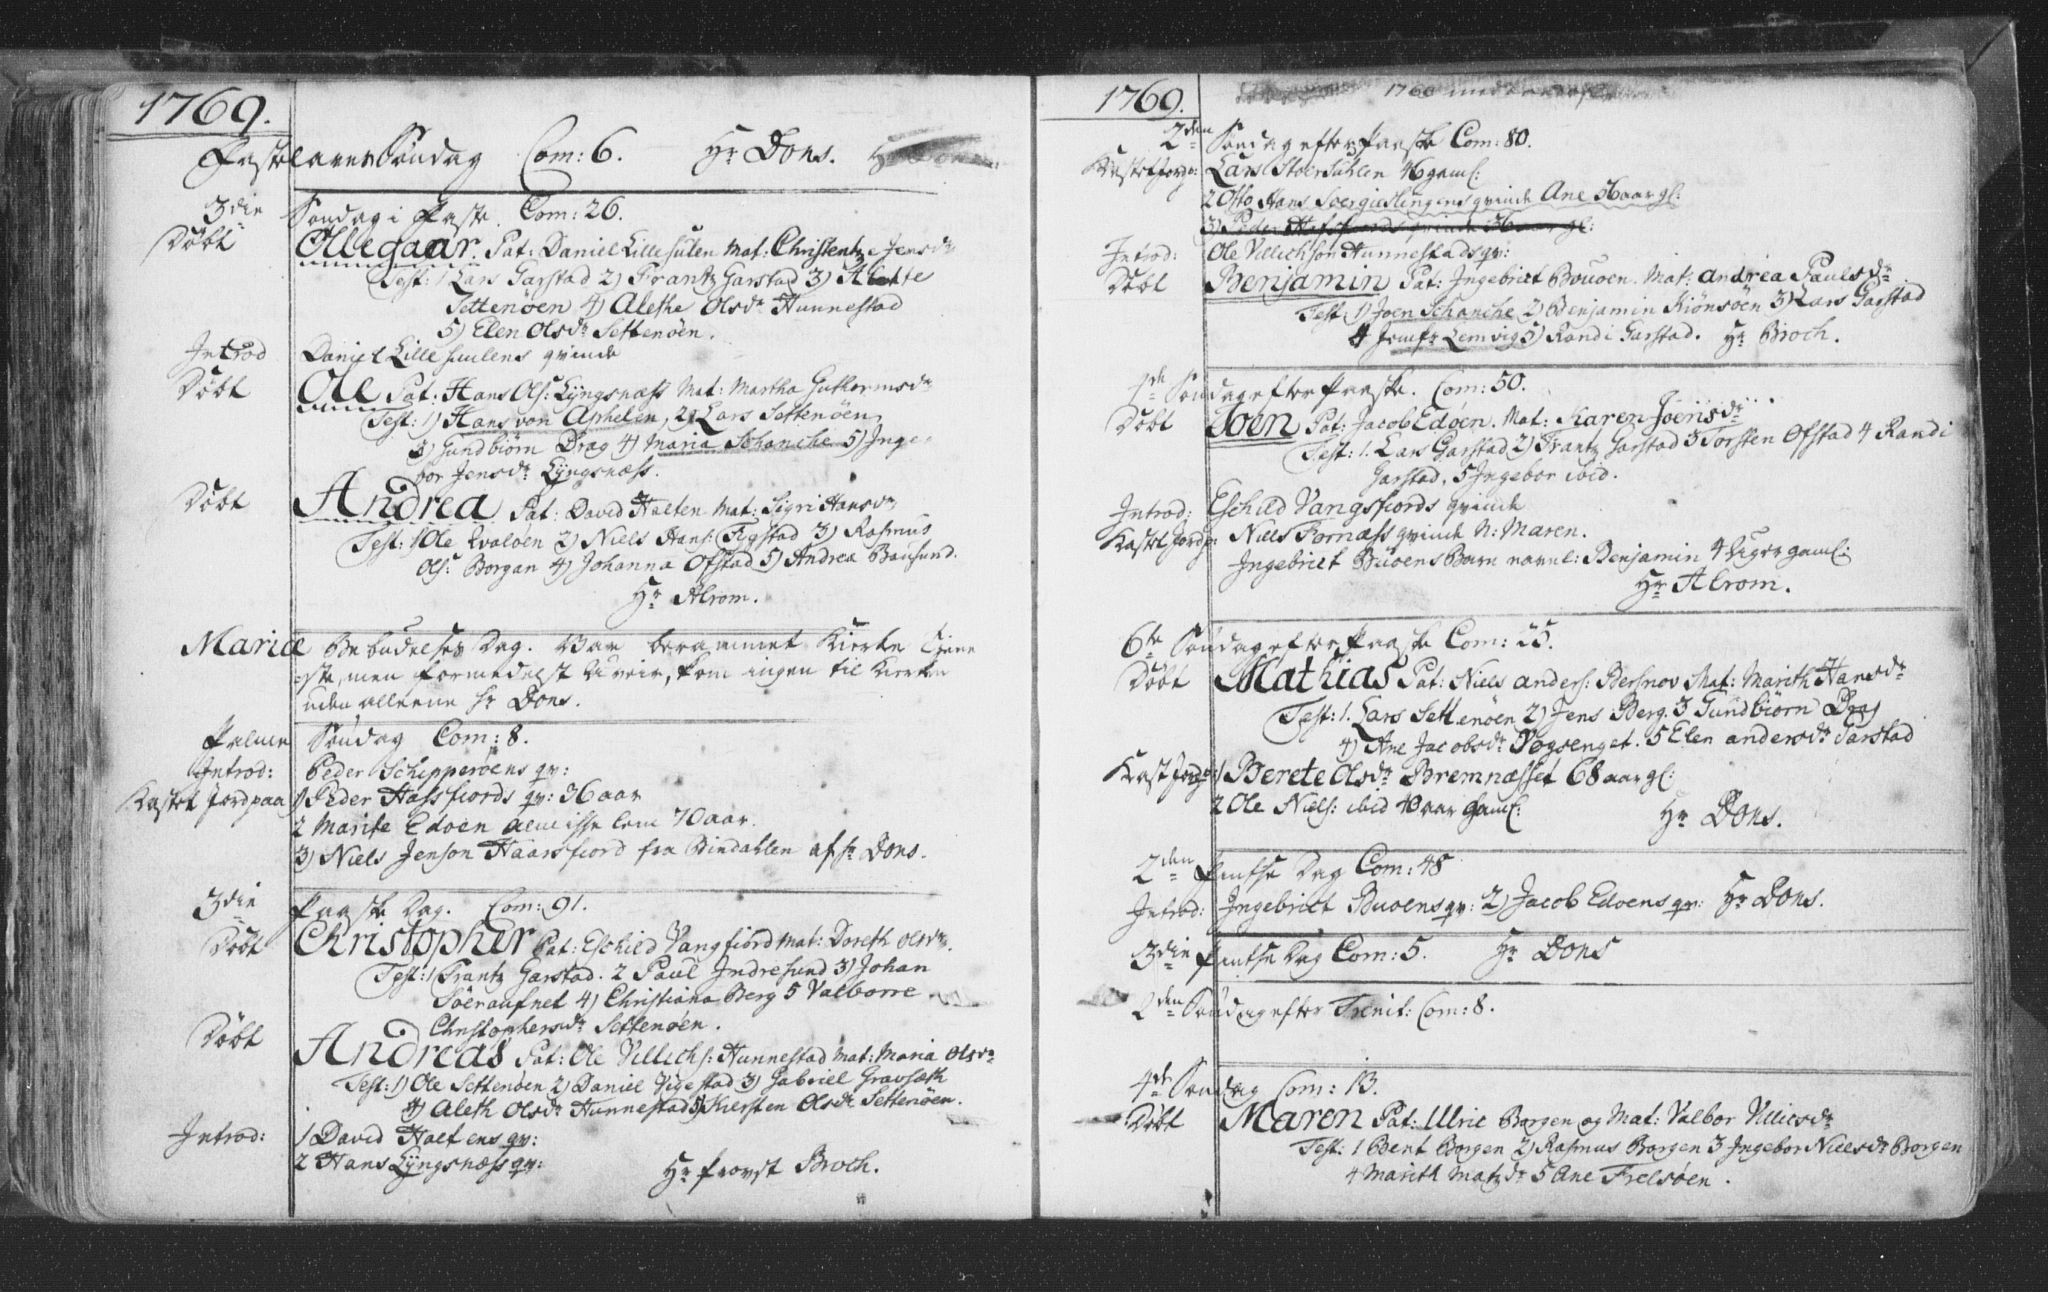 1769.
Fastelavens Søndag Com: 6. Hr Dons.
3die Søndag i Faste. Com: 26.
Døbt Ollegaar. Pat: Daniel Lillesulen Mat: Christentz Jensdr
Test: 1 Lars Garstad 2) Frantz Garstad 3) Alette
Settenöen 4) Alethe Olsdr Hunnestad
5) Elen Olsdr Settenöen.
Introd Daniel Lillesulens qvinde
Døbt Ole Pat: Hans Ols: Lÿngsnæss Mat: Martha Guttormsdr
Test: 1) Hans von Aphelen, 2) Lars Settenöen
3) Gundbiörn Drag 4) Maria Schanche 5) Inge-
bor Jensdr Lÿngsnæss.
Døbt Andrea Pat: David Halten Mat: Sigri Hansdr
Test: 1 Ole Qvaløen 2) Niels Hans: Tigstad 3) Rasmus
Ols: Borgan 4) Johanna Ofstad 5) Andrea Bausund.
Hr Alrom.
Mariæ Bebudelses Dag. Var berammet Kierke Tiene-
ste, men formedelst Uveir, kom ingen til Kierken
uden alleene Hr Dons.
Palme Søndag Com: 8.
Introd: Peder Schipperöens qv:
Kastet Jord paa 1) Peder Hassfiords qv: 36 aar
2 Marite Edöen almisse lem 70 aar.
3) Niels Jenson Haarsfiord fra Bindahlen af Hr Dons.
3die Paaske Dag. Com: 91.
Døbt Christopher Pat: Eschild Vangfiord Mat: Doreth Olsdr.
Test: 1 Frantz Garstad. 2 Paul Indresund 3) Johan
Söeraufnet 4) Christiana Berg 5 Valborre
Christophersdr Settenöen.
Døbt Andreas Pat: Ole Villichs: Hunnestad Mat: Maria Olsdr
Test: 1) Ole Settenöen 2) Daniel Vigestad 3) Gabriel Gravsæth
4) Aleth Olsdr Hunnestad 5) Kiersten Olsdr Settenöen.
Introd: 1 David Haltens qv:
2 Hans Lÿngsnæss qv: Hr Provst Broch.
1769.
2den Søndag efter Paaske Com: 80.
Kastet Jord p: Lars Stoersuhlen 46 gaml:
2 Otto Hans Soerginslingens qvinde Ane 56 aar gl:
3) Peder Hafsfiords qvinde 36 aar gl:
Introd: Ole Villichsøn Hunnestads qv:
Døbt Benjamin Pat: Ingebriet Bouoen. Mat: Andrea Paulsdr
Test 1) Joen Schanche 2) Benjamin Kiönsöen 3) Lars Garstad
4 Jomfr Lemvig 5) Randi Garstad. Hr Broch.
1de Søndag efter Paaske. Com: 50.
Døbt Joen Pat: Jacob Edöen. Mat: Karen Joensdr
Test: 1. Lars Garstad 2) Frantz Garstad 3 Torsten Ofstad 4 Randi
Garstad, 5 Ingebor ibid.
Introd: Eschild Vangsfiords qvinde
Kastet Jord p: Niels Fornæss qvinde N: Maren.
Ingebriet Buoens Barn navnl: Benjamin 4 Uger gaml:
Hr Alrom.
6te Søndag efter Paaske Com: 25.
Døbt Mathias Pat: Niels Anders: Bersnov Mat: Marith Hansdr
Test: 1. Lars Settenöen 2) Jens Berg. 3 Gundbiörn Drag
4) Ane Jacobsdr Vogsenget. 5 Elen Andersdr Garstad
Kast Jord p: 1) Berete Olsdr Bremnæsset 68 aar gl:
2 Ole Niels: ibid 40 aar gaml: Hr Dons.
2den Pintse Dag Com: 48
Introd: Ingebriet Buoens qv: 2) Jacob Edoens qv: Hr Dons.
3die Pintse Dag Com: 5. Hr Dons
2den Søndag efter Trenit: Com: 8.
4de Søndag Com: 13.
Døbt Maren Pat: Ulric Borgen og Mat: Valbor Villicsdr
Test: 1 Bent Borgen 2) Rasmus Borgen 3 Ingebor Nielsdr Borgen
4 Marith Matzdr 5 Ane Frelsöen.